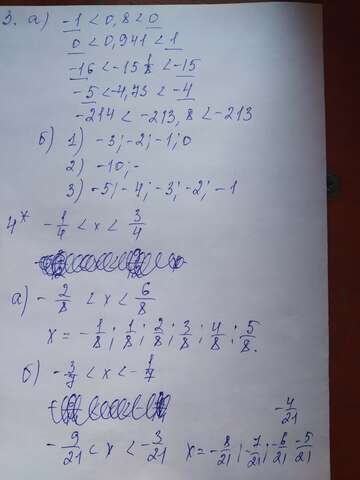 3. а) -1 < 0,8 < 0
0 < 0,941 < 1
-16 < -15 1/8 < -15
-5 < -4,73 < -4
-214 < -213,8 < -213
б) 1) -3; -2; -1; 0
2) -10; -
3) -5; -4; -3; -2; -1
4* -1/4 < x < 3/4
а) -2/8 < x < 6/8
x = -1/8; 1/8; 2/8; 3/8; 4/8; 5/8.
б) -3/7 < x < -1/7
-9/21 < x < -3/21 x = -8/21; -7/21; -6/21 -5/21
-4/21